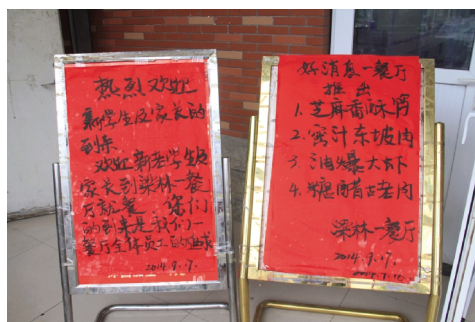 热烈欢迎
新学生及家长的
到来
欢迎新老学生及
家长到梁林一餐
厅就餐 你们
的到来是我们一
餐厅全体员工的追求
2014.9.17.
好消息一餐厅
推出
1.芝麻香酥
2.蜜汁东坡肉
3.油爆大虾
4.糖醋古老肉
梁林一餐厅
2014.9.17.